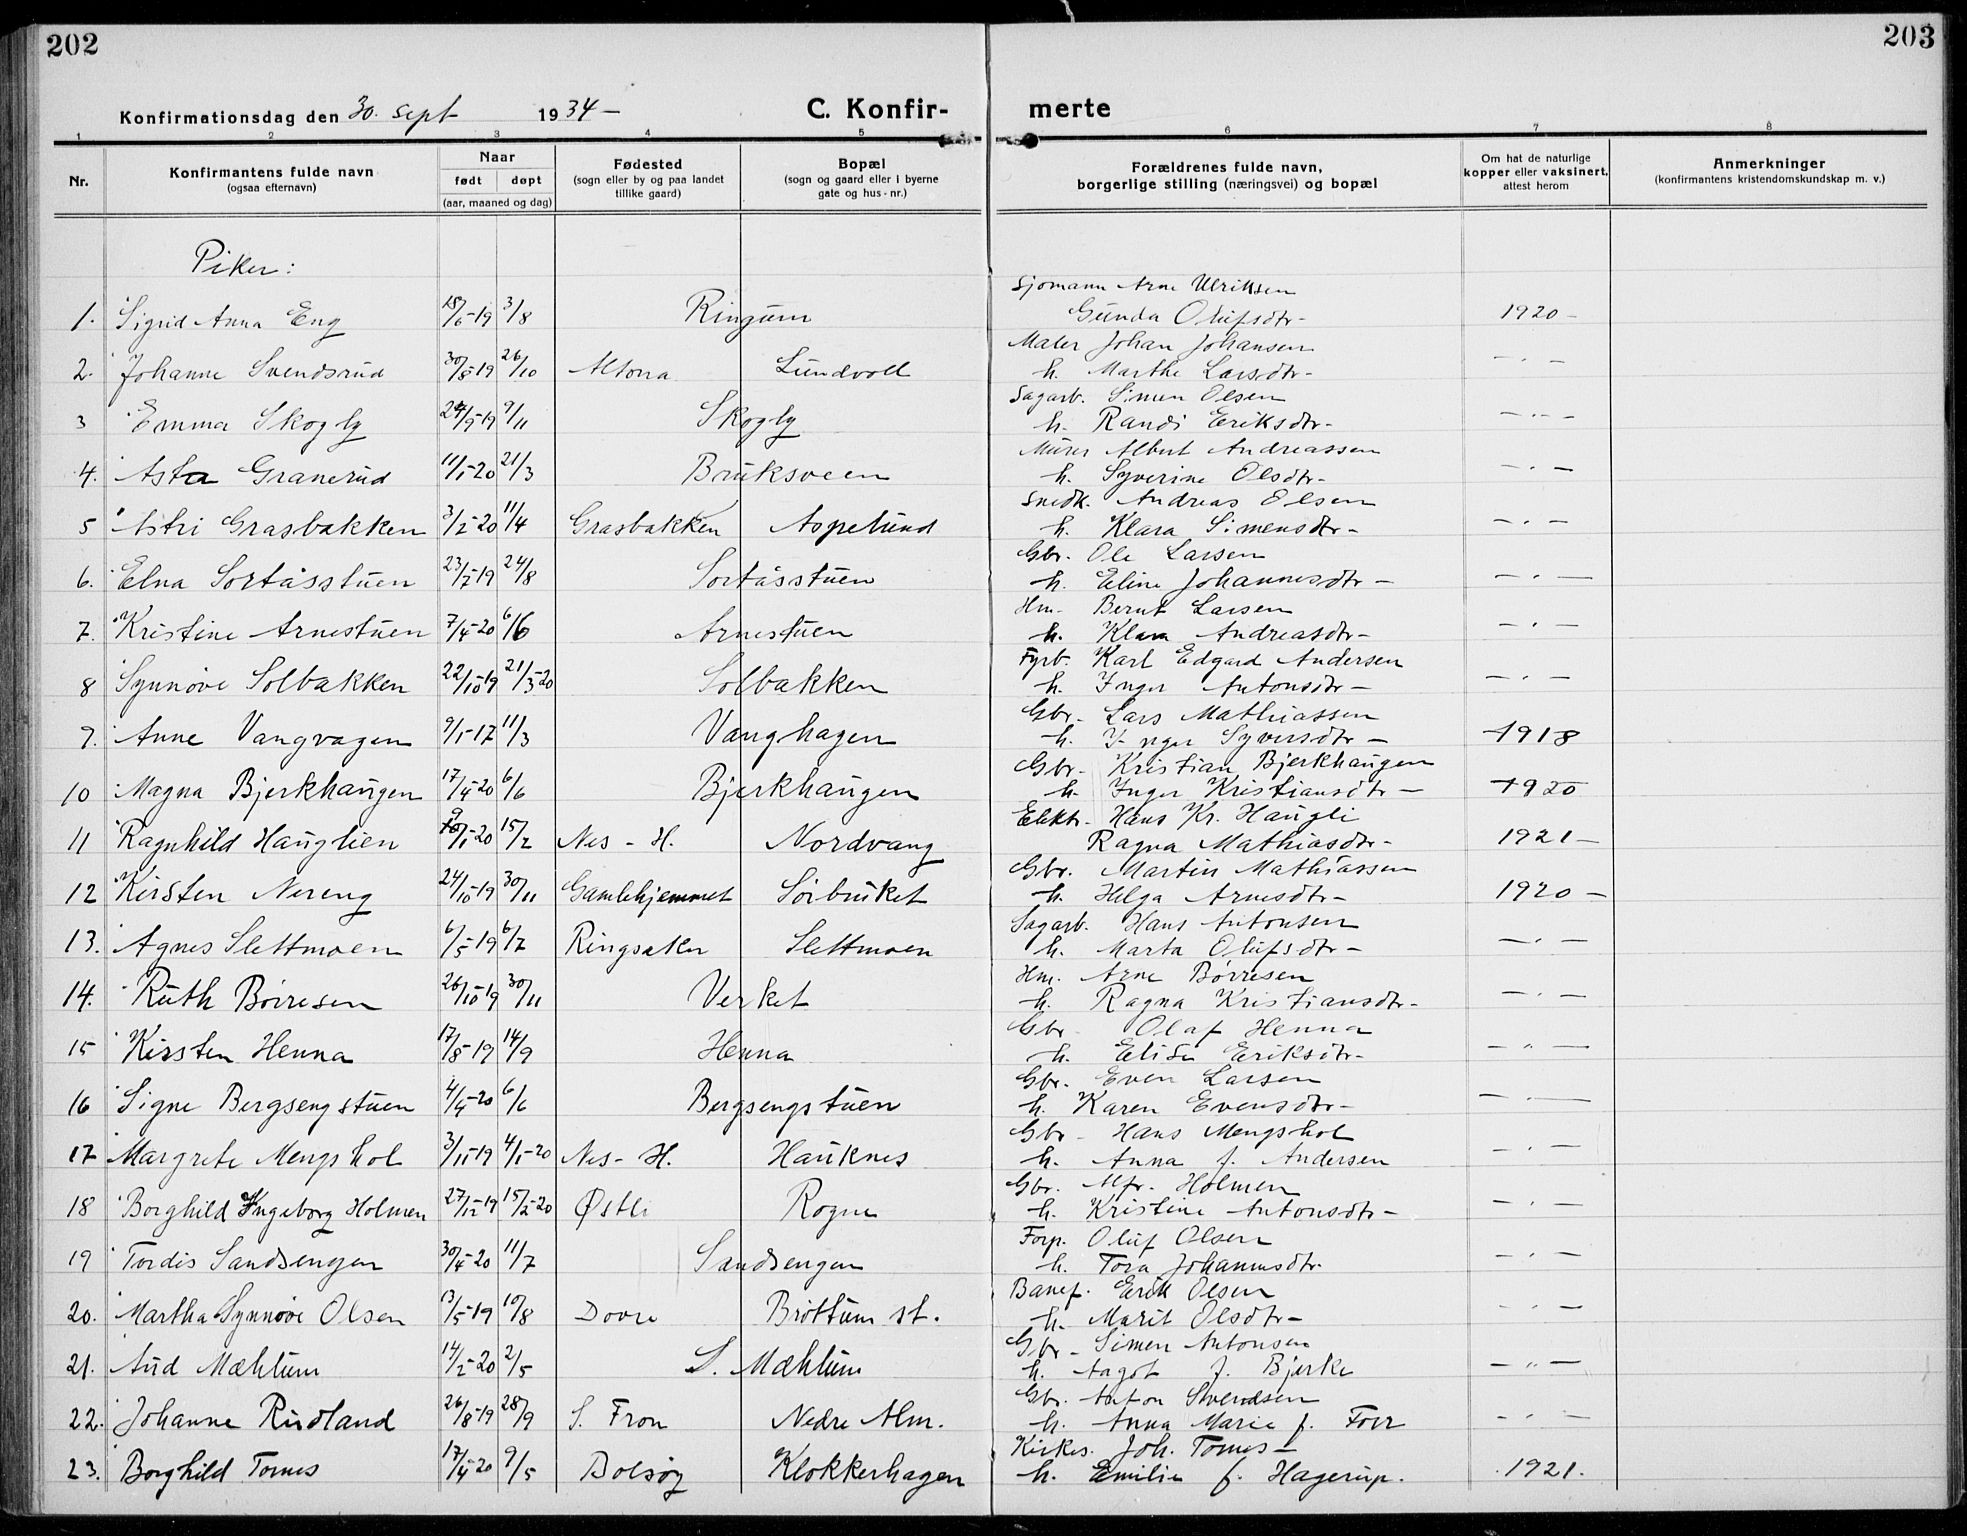 202
203
Konfirmationsdag den 30. sept 1934 –
C. Konfir-
merte
1 2 3 4 5 6 7 8
Nr.
Konfirmantens fulde navn
(ogsaa efternavn)
Naar
født døpt
(aar, maaned og dag)
Fødested
(sogn eller by og paa landet
tillike gaard)
Bopæl
(sogn og gaard eller i byerne
gate og hus - nr.)
Forældrenes fulde navn,
borgerlige stilling (næringsvei) og bopæl
Om hat de naturlige
kopper eller vaksinert,
attest herom
Anmerkninger
(konfirmantens kristendomskundskap m. v.)
Piker:
Sjømann Arne Ulriksen
1. Sigrid Anna Eng 15/6-19 3/8 Ringum Gunda Olufsdtr- 1920 –
Maler Johan Johansen
2. Johanne Svendsrud 30/8-19 26/10 Alstona Lundvoll h. Marthe Larsdtr- – " –
Sagarb. Simen Olsen
3 Emma Skogly 24/9-19 9/11 Skogly h. Randi Eriksdtr- – " –
Murer Albert Andreassen
4. Asta Granerud 11/1-20 21/3 Bruksveen h. Syverine Olsdtr- – " –
Snedk. Andreas Olsen
5 Astri Grasbakken 3/2-20 11/4 Grasbakken Aspelund h. Klara Simensdtr- – " –
Gbr. Ole Larsen
6. Elna Sortåsstuen 23/7-19 24/8 Sortåsstuen h. Eline Johannesdtr – – " –
Hm. Bernt Larsen
7. Kristine Arnestuen 7/4-20 6/6 Arnestuen h. Klara Andreasdtr- – " –
Fyrb. Karl Edgard Andersen
8 Synnøve Solbakken 22/10-19 21/3-20 Solbakken h. Inger Antonsdtr – – " –
Gbr. Lars Mathiassen
9. Anne Vangvagen 9/1-17 11/3 Vanghagen h. Inger Syversdtr – 1918
Gbr. Kristian Bjerkhaugen
10 Magna Bjerkhaugen 17/4-20 6/6 Bjerkhaugen h. Inger Kristiansdtr – 1920
Elektr. Hans Kr. Haugli
11 Ragnhild Hauglien 9/1-20 15/2 Nes - H. Nordvang Ragna Mathiasdtr- 1921 –
Gbr. Martin Mathiassen
12 Kirsten Nereng 24/10-19 30/11 Gamlehjemmet Sørbruket h. Helga Arnesdtr- 1920 –
Sagarb. Hans Antonsen
13. Agnes Slettmoen 6/5-19 6/7 Ringsaker Slettmoen h. Marta Olufsdtr – – " –
Hm. Arne Børresen
14. Ruth Børresen 26/10-19 30/11 Verket h. Ragna Kristiansdtr- – " –
Gbr Olaf Henna
15 Kirsten Henna 17/8-19 14/9 Henna h. Elise Eriksdtr- – " –
Gbr. Even Larsen
16 Signe Bergsengstuen 4/4-20 6/6 Bergsengstuen h. Karen Evensdtr- – " –
Gbr - Hans Mengshol
17 Margrete Mengshol 3/11-19 4/1-20 Nes - H. Hauknes h. Anna f. Andersen " –
Gbr. Alfr. Holmen
18 Borghild Ingeborg Holmen 27/12-19 15/2-20 Østli Rogne h. Kristine Antonsdtr- – " –
Forp. Oluf Olsen
19 Tordis Sandsengen 30/4-20 11/7 Sandsengen h. Tora Johannesdtr. – " –
Banef. Erik Olsen
20. Martha Synnøve Olsen 13/5-19 10/8 Dovre Brøttum st. h. Marit Olsdtr – – " –
Gbr - Simen Antonsen
21. Aud Mæhlum 14/2-20 2/5 S. Mæhlum h. Aagot f. Bjerke – " –
Gbr. Anton Svendsen
22. Johanne Rudland 26/8-19 28/9 S. Fron Nedre Alm. h. Anna Marie f. Foer – " –
Kirkes. Joh. Tornes –
23. Borghild Tornes 17/4-20 9/5 Bolsøy Klokkerhagen h. Emilie f. Hagerup. 1921.